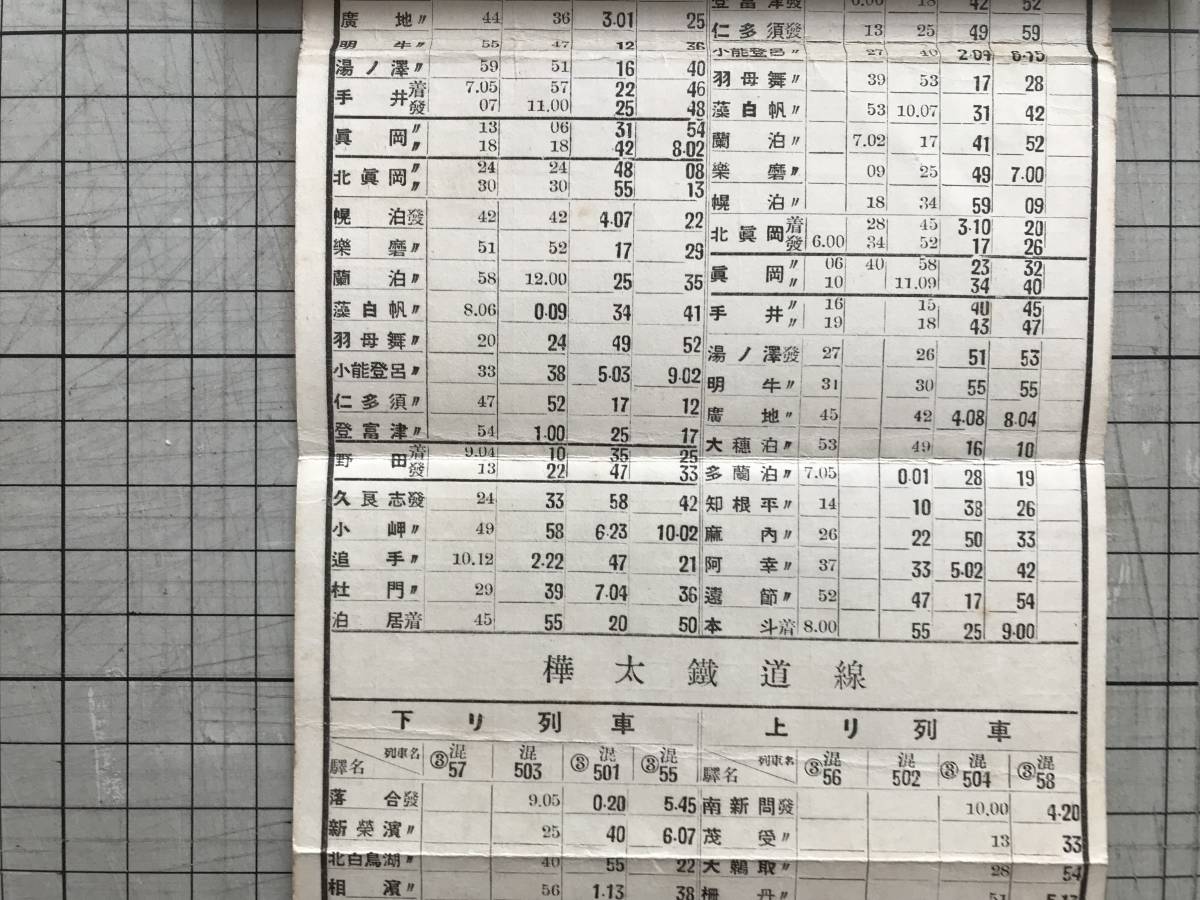 廣地〃 44 36 3.01 25
明牛〃 55 47 12 36
湯ノ澤〃 59 51 16 40
手井着 7.05 57 22 46
發 07 11.00 25 48
眞岡〃 13 06 31 54
〃 18 18 42 8.02
北眞岡〃 24 24 48 08
〃 30 30 55 13
幌泊發 42 42 4.07 22
樂磨〃 51 52 17 29
蘭泊〃 58 12.00 25 35
藻白帆〃 8.06 0.09 34 41
羽母舞〃 20 24 49 52
小能登呂〃 33 38 5.03 9.02
仁多須〃 47 52 17 12
登富津〃 54 1.00 25 17
野田着 9.04 10 35 25
發 13 22 47 33
久良志發 24 33 58 42
小岬〃 49 58 6.23 10.02
追手〃 10.12 2.22 47 21
杜門〃 29 39 7.04 36
泊居着 45 55 20 50
登富津發 6.00 18 42 52
仁多須發 13 25 49 59
小能登呂〃 27 40 2.04 6.15
羽母舞〃 39 53 17 28
藻白帆〃 53 10.07 31 42
蘭泊〃 7.02 17 41 52
樂磨〃 09 25 49 7.00
幌泊〃 18 34 59 09
北眞岡着 28 45 3.10 20
發 6.00 34 52 17 26
眞岡〃 06 40 58 23 32
〃 10 11.09 34 40
手井〃 16 15 40 45
〃 19 18 43 47
湯ノ澤發 27 26 51 53
明牛〃 31 30 55 55
廣地〃 45 42 4.08 8.04
大穗泊〃 53 49 16 10
多蘭泊〃 7.05 0.01 28 19
知根平〃 14 10 38 26
麻內〃 26 22 50 33
阿幸〃 37 33 5.02 42
遠節〃 52 47 17 54
本斗着 8.00 55 25 9.00
樺太鐵道線
下リ列車
列車名 驛名 ③混57 混503 ③混501 ③混55
落合發 9.05 0.20 5.45
新榮濱〃 25 40 6.07
北白鳥湖〃 40 55 22
相濱〃 56 1.13 38
上リ列車
列車名 驛名 ③混56 混502 ③混504 ③混58
南新問發 10.00 4.20
茂受〃 13 33
大鵜取〃 28 54
柵丹〃 51 5.13